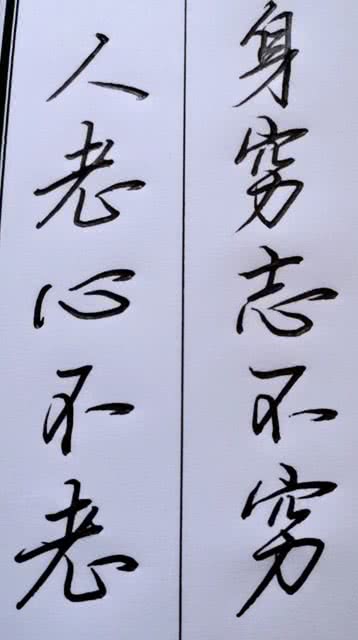 身穷志不穷
人老心不老